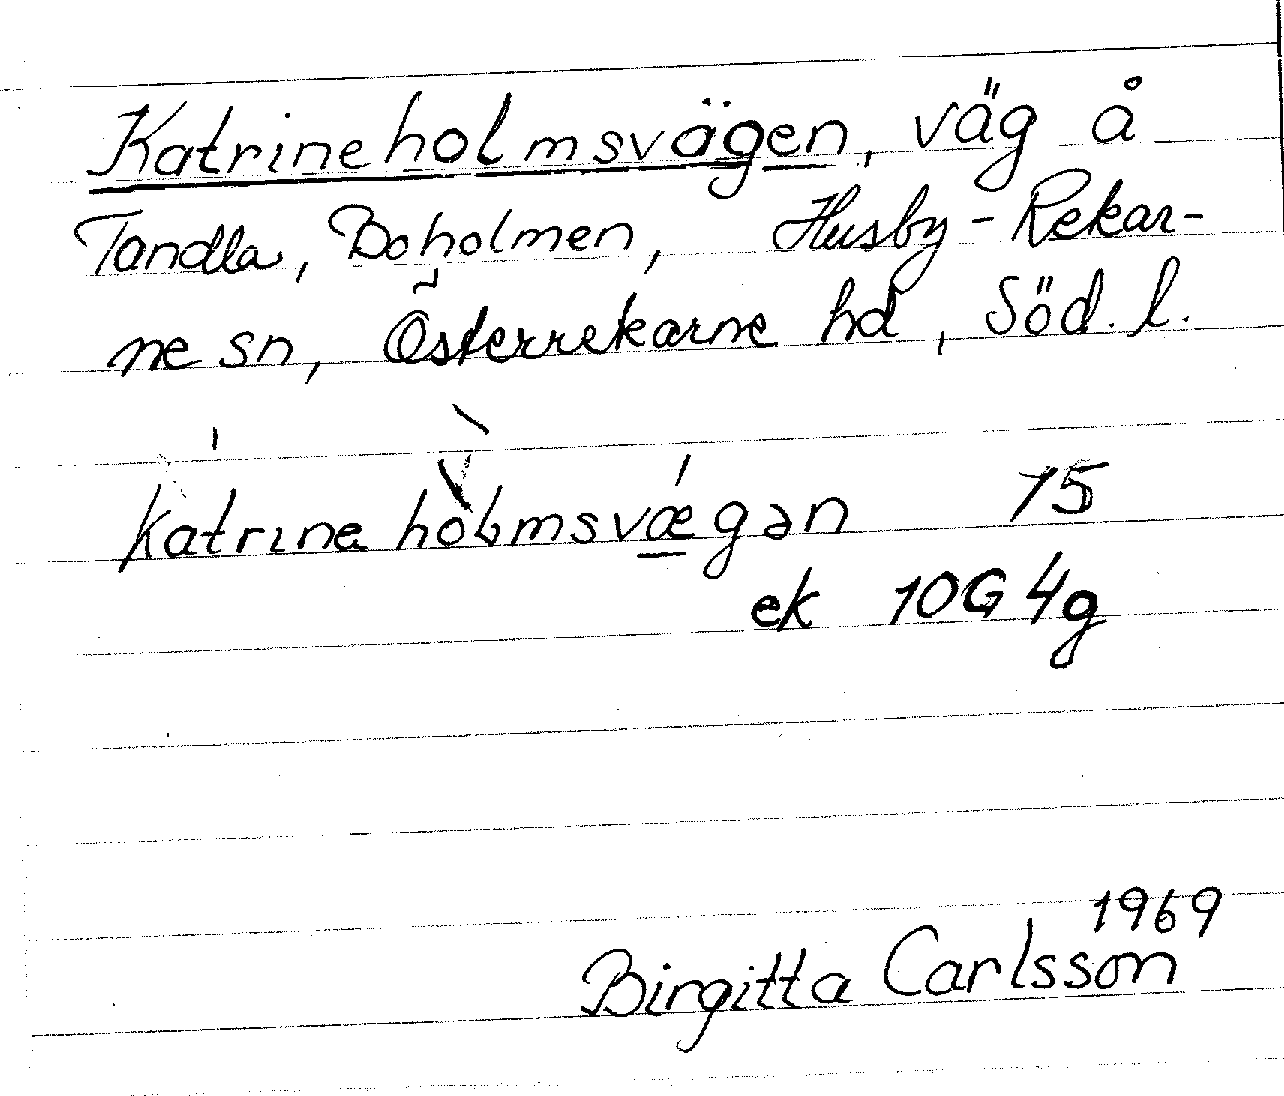 Katrineholmsvägen, väg å
Tandla, Boholmen, Husby-Rekar-
ne sn, Österrekarne hd, Söd. l.
katrıneholmsvægən 75
ek 10G4g
1969
Birgitta Carlsson